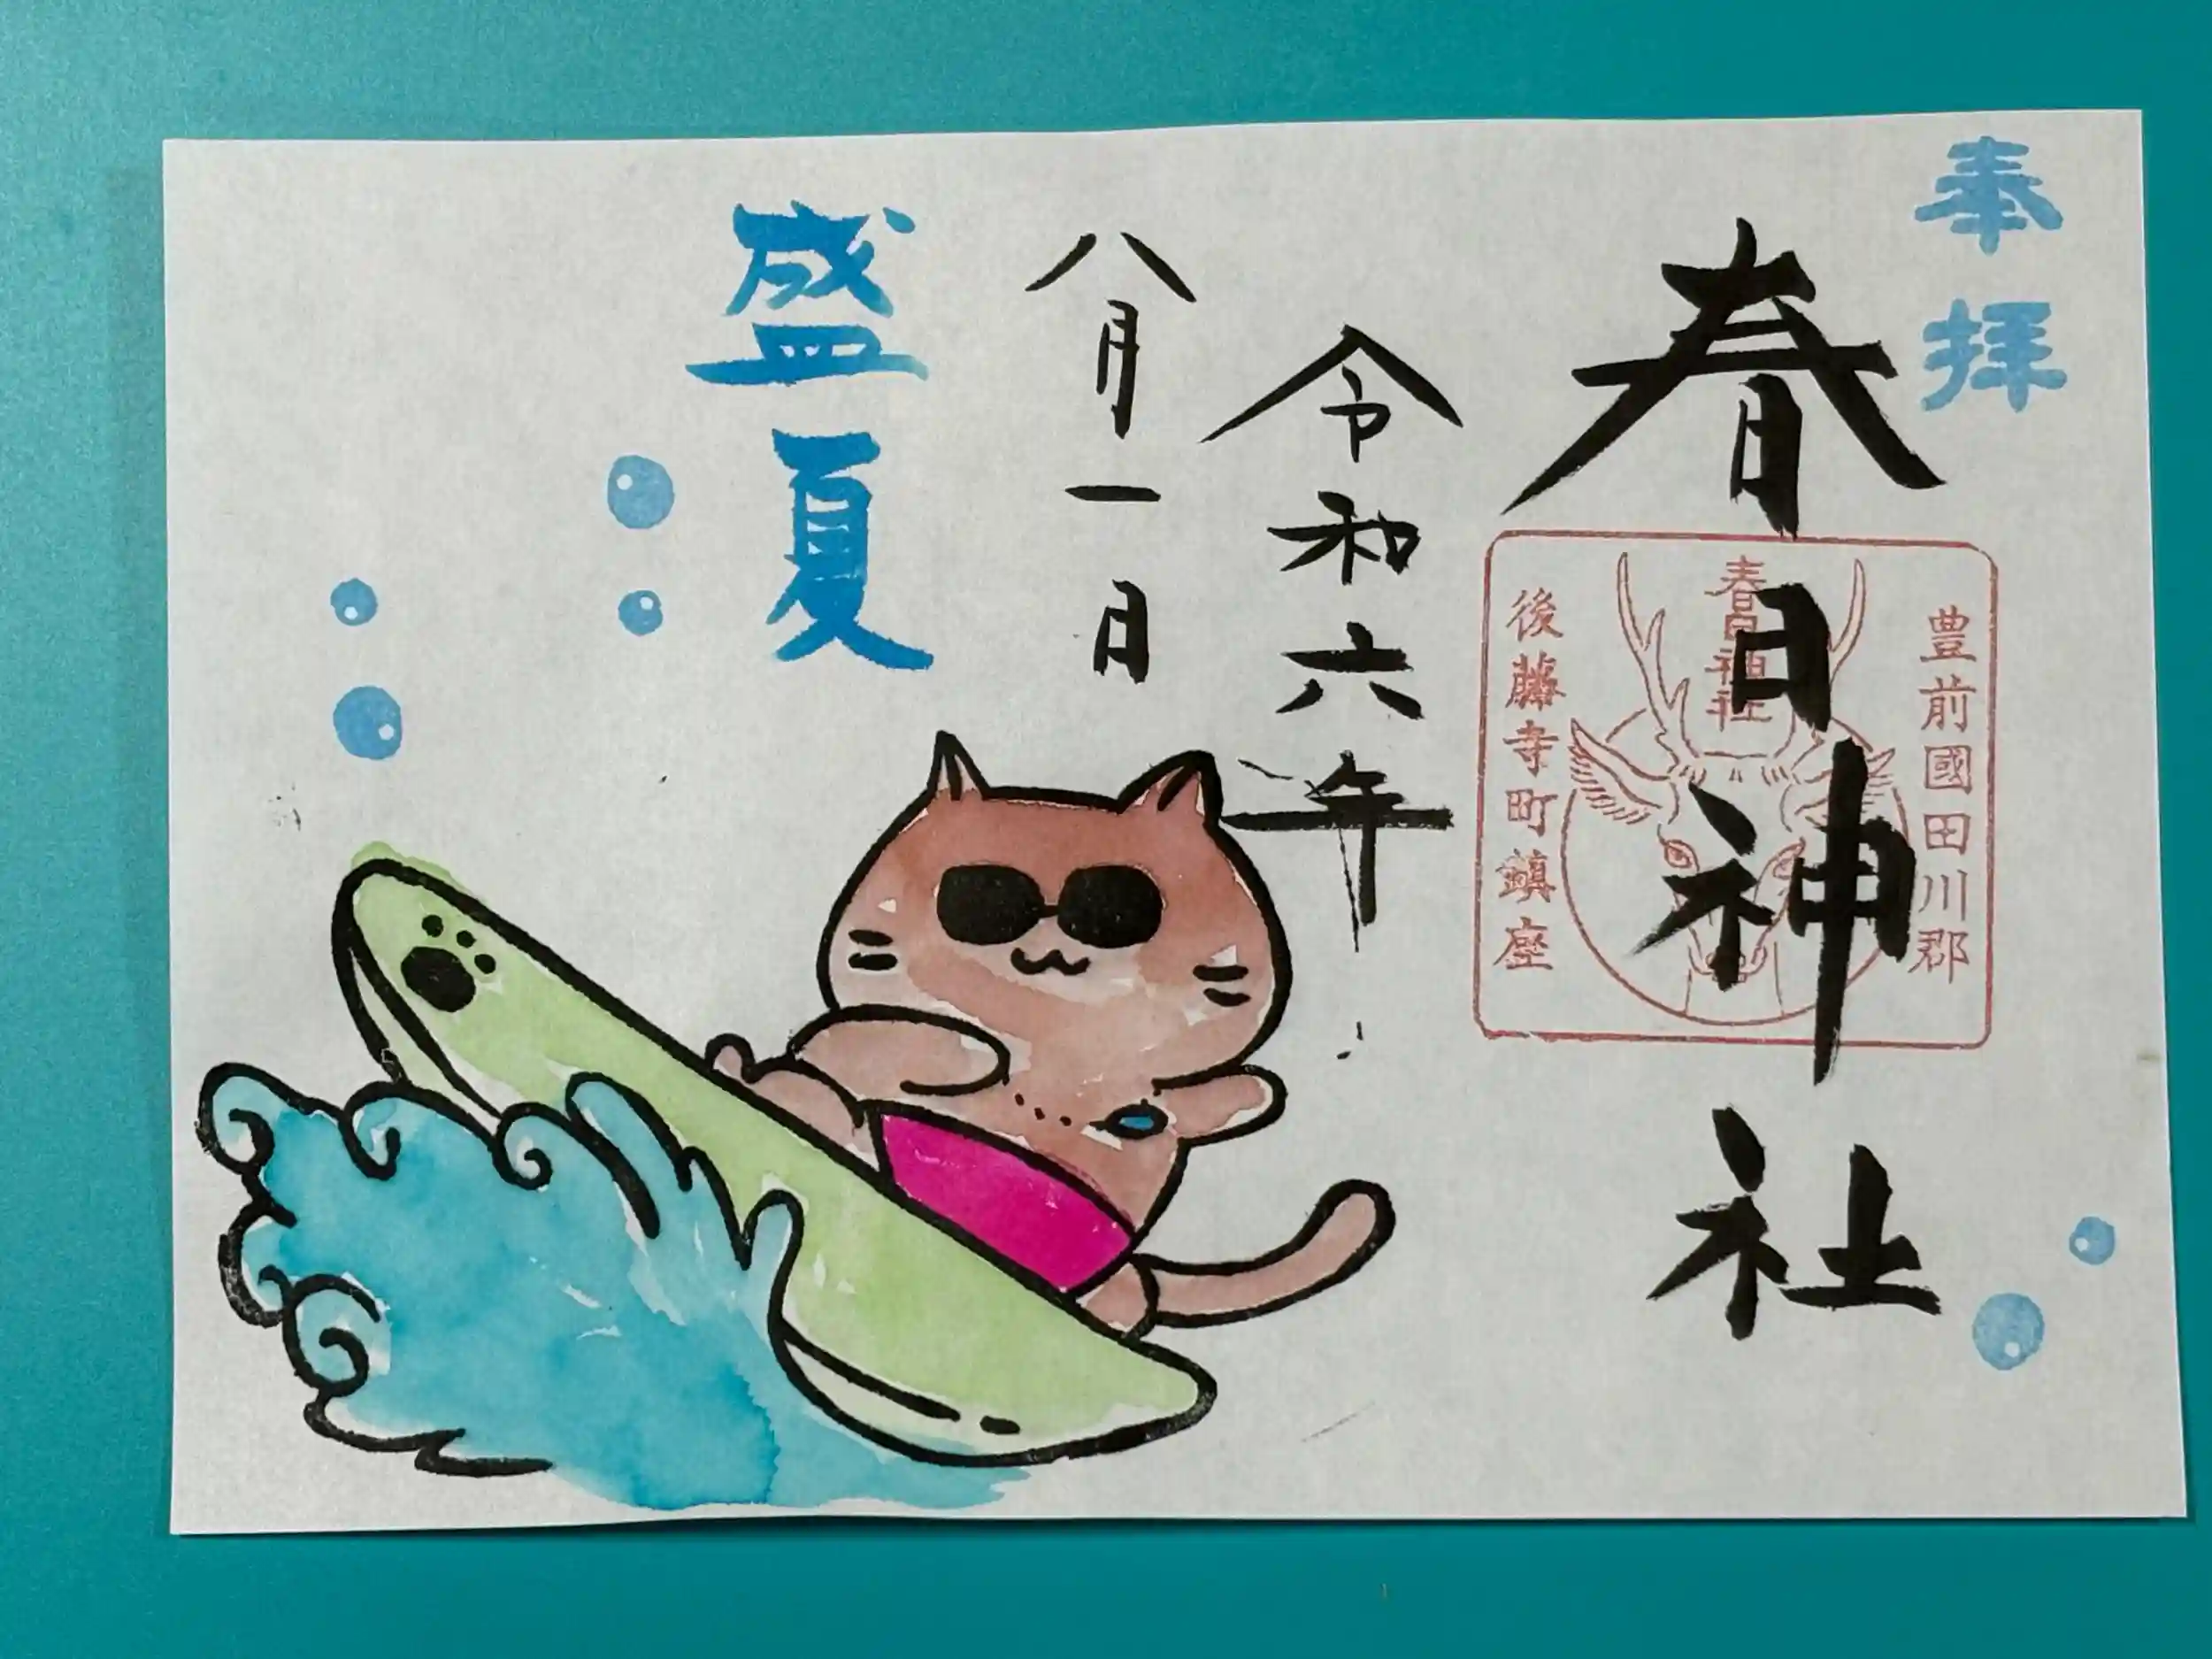 奉拝
春日神社
豊前國田川郡
春日神社
後藤寺町鎮座
令和六年
八月一日
盛夏